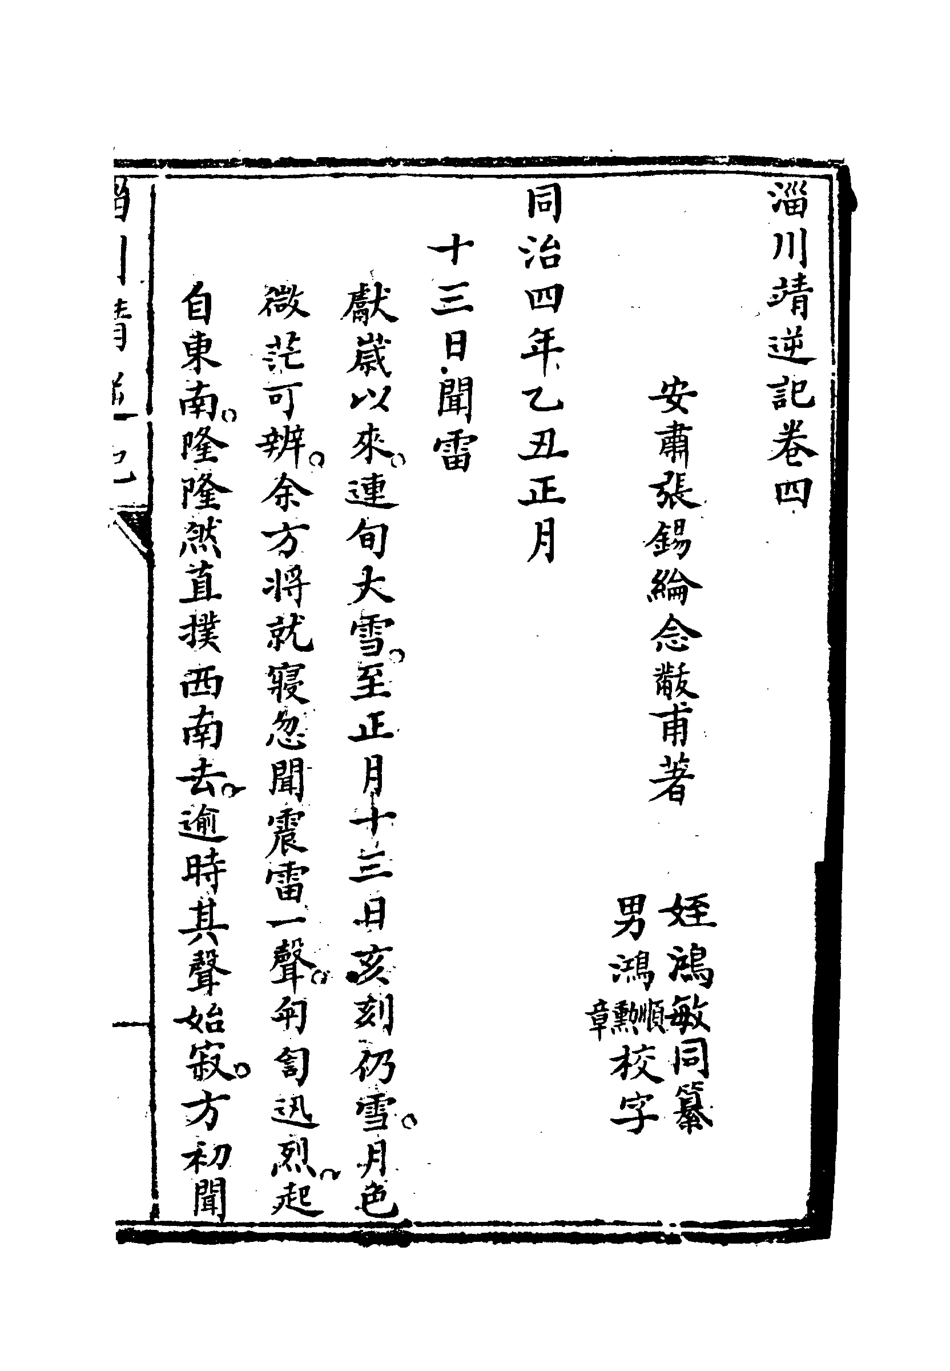 淄川靖逆記卷四
安肅張錫綸念黻甫著
姪鴻敏同纂
男鴻順勲章校字
同治四年乙丑正月
十三日聞雷
獻歲以來。連旬大雪。至正月十三日亥刻仍雪。月色
微茫可辨。余方將就寢忽聞震雷一聲。訇訇迅烈。起
自東南。隆隆然直撲西南去。逾時其聲始寂。方初聞
淄川靖逆記